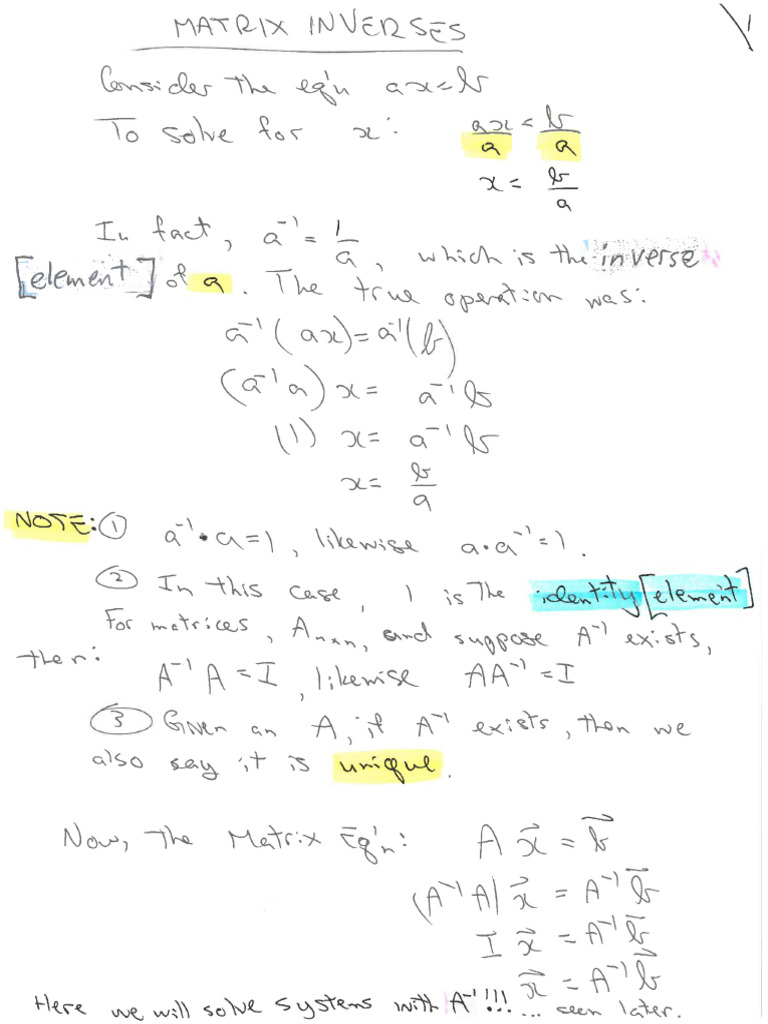 MATRIX INVERSES
1
Consider the eq'n ax=b
To solve for x: ax/a = b/a
x = b/a
In fact, a⁻¹ = 1/a, which is the inverse
[element] of a. The true operation was:
a⁻¹(ax)=a⁻¹(b)
(a⁻¹a) x = a⁻¹b
(1) x = a⁻¹b
x = b/a
NOTE: ① a⁻¹·a=1, likewise a·a⁻¹=1.
② In this case, 1 is the identity [element]
For matrices, Aₙₓₙ, and suppose A⁻¹ exists,
then:
A⁻¹A = I, likewise AA⁻¹ = I
③ Given an A, if A⁻¹ exists, then we
also say it is unique.
Now, the Matrix Eq'n: A x⃗ = b⃗
(A⁻¹A) x⃗ = A⁻¹ b⃗
I x⃗ = A⁻¹ b⃗
x⃗ = A⁻¹ b⃗
Here we will solve systems with A⁻¹!!! ... seen later.